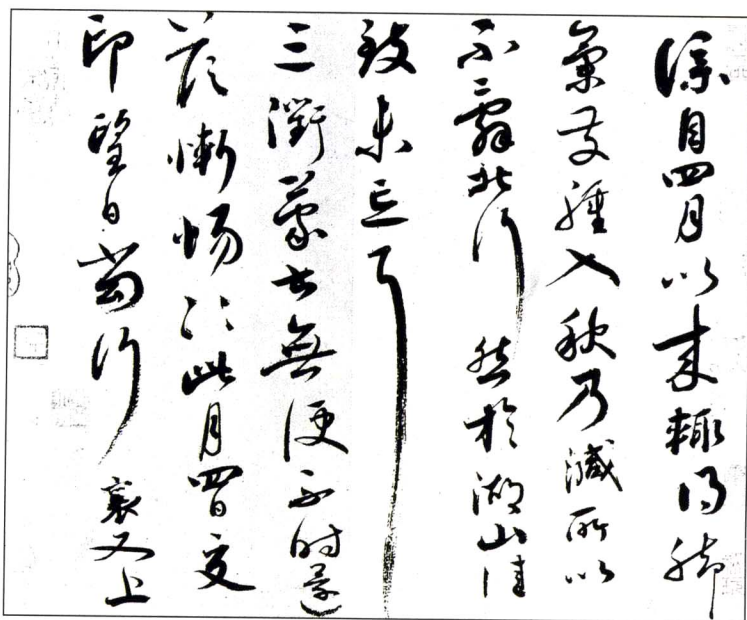 僕自四月以来輙得脚
氣發腫入秋乃減所以
不辭北行然於湖山佳
致未忘耳
三衢蒙書無便不時還
答慚惕〻此月四日交
印望日當行襄又上